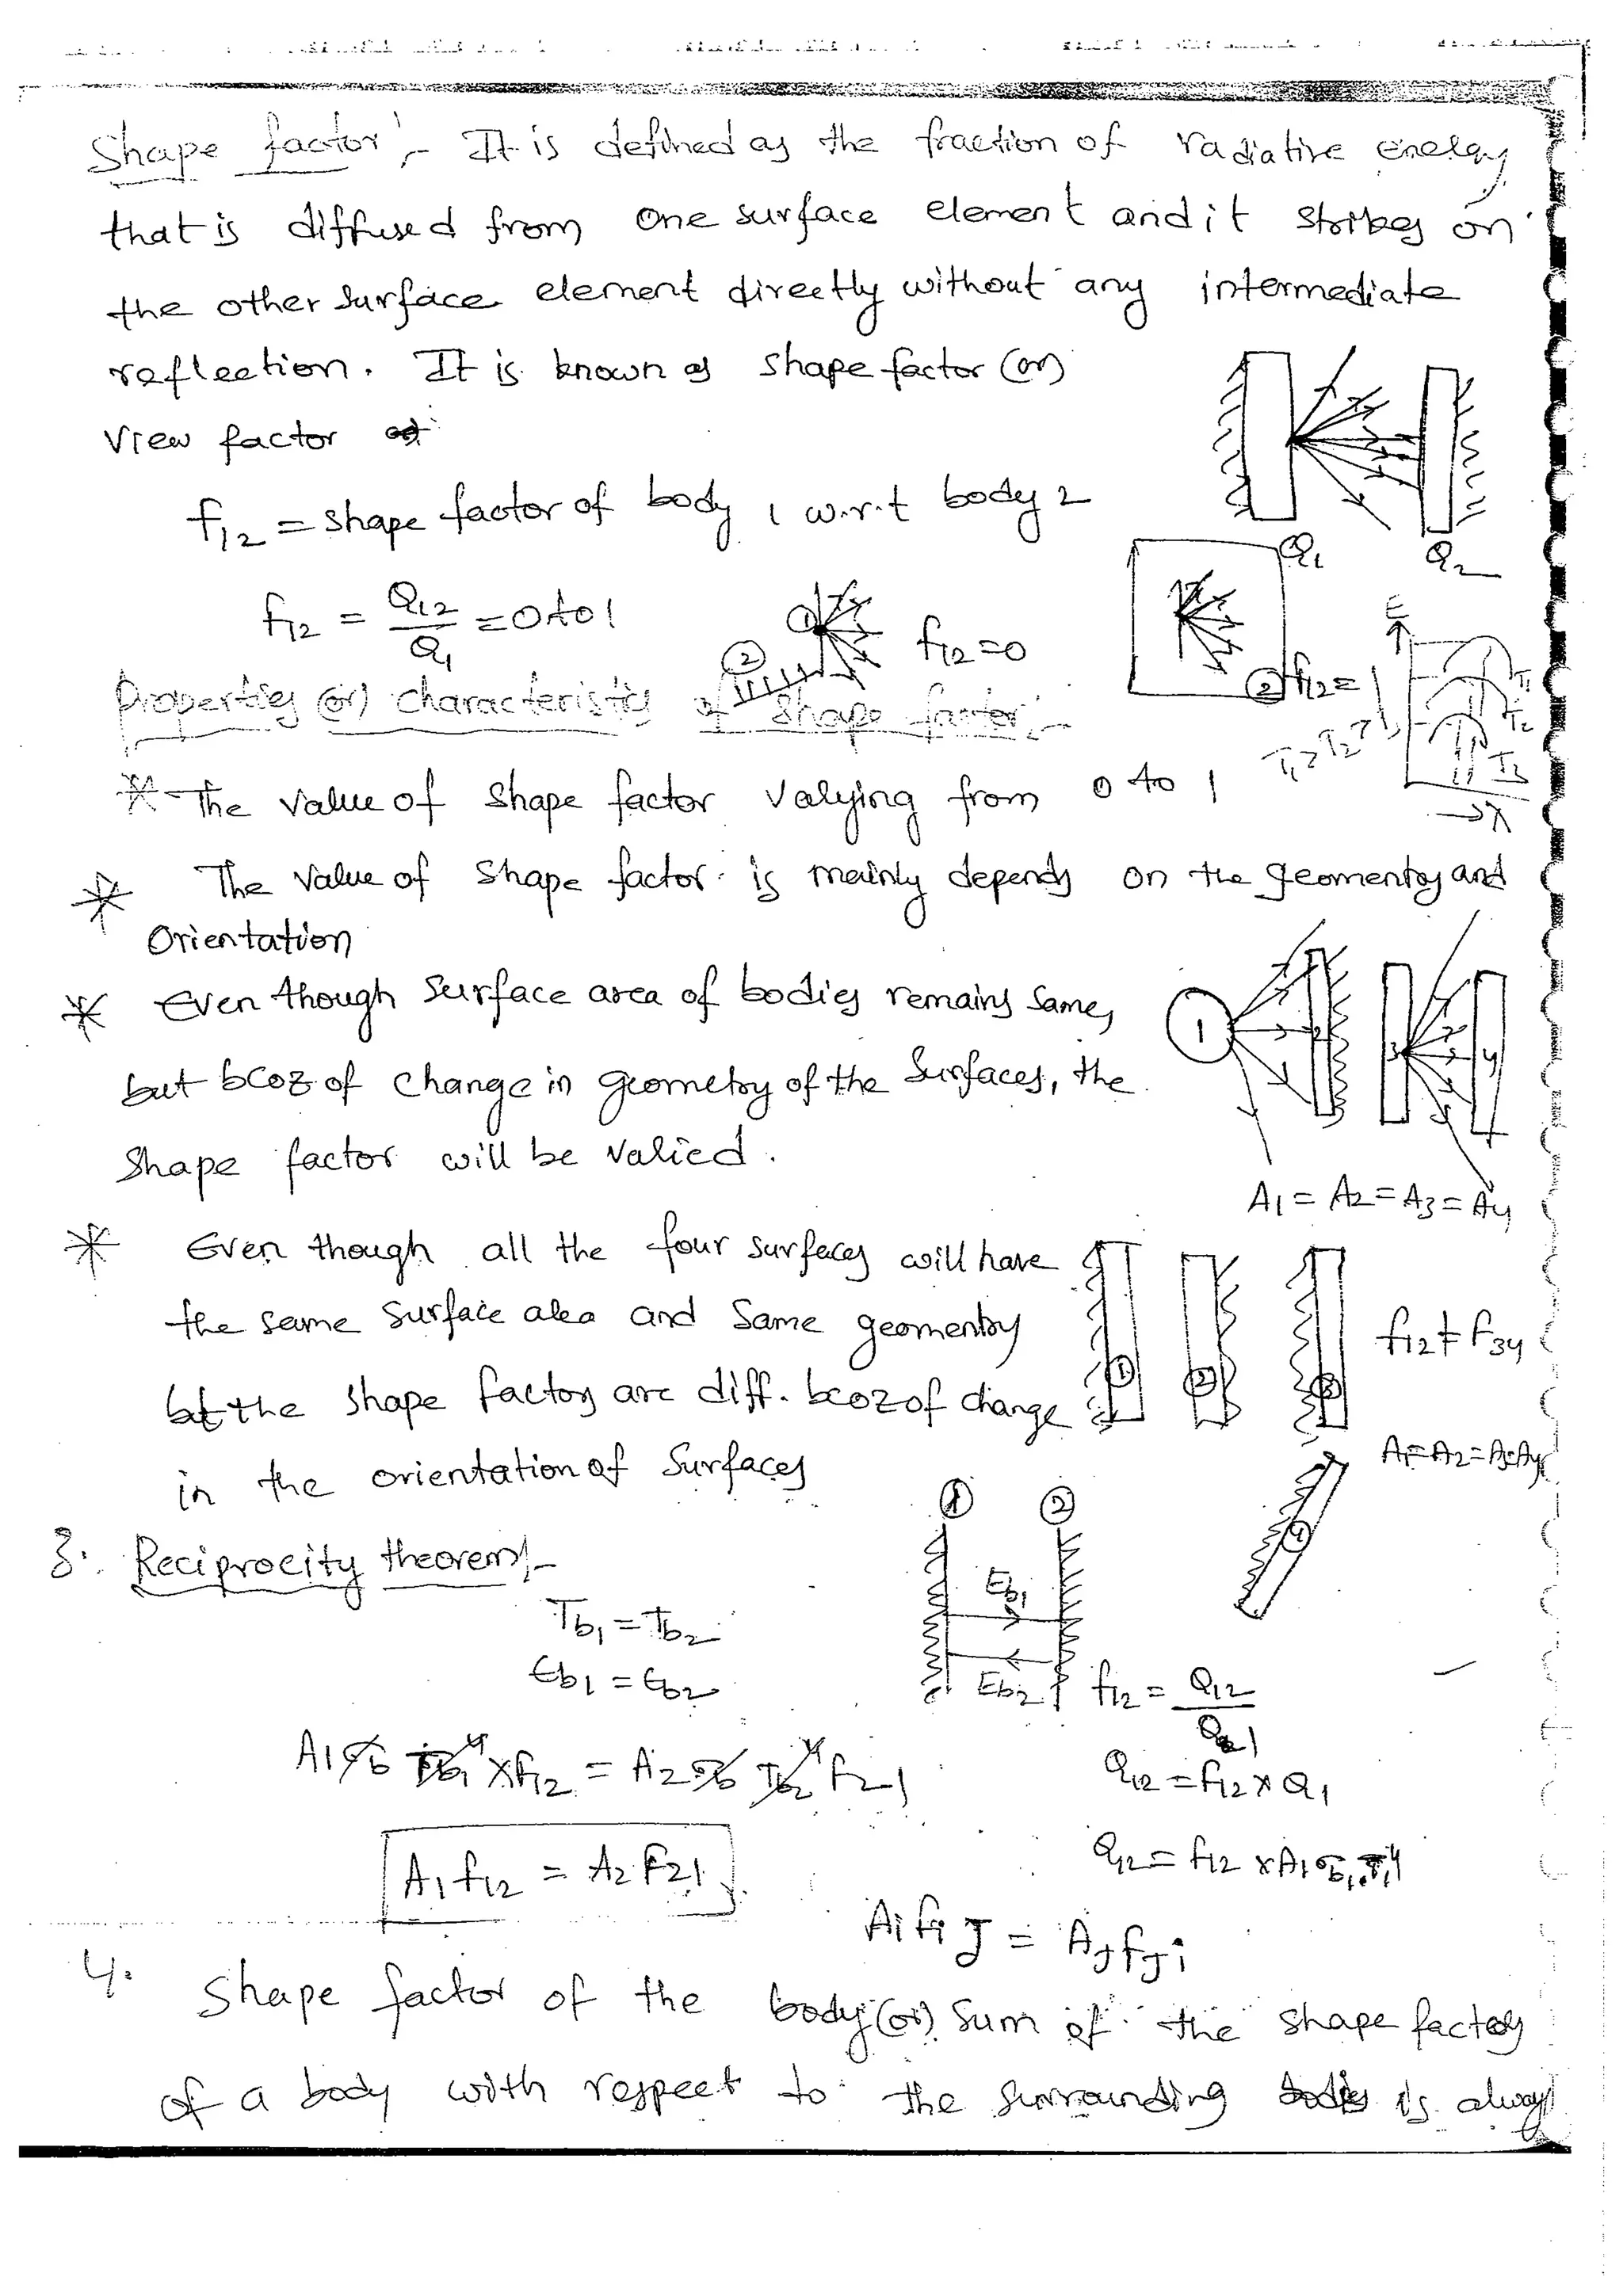 Shape factor :- It is defined as the fraction of radiative energy
that is diffused from one surface element and it strikes on
the other surface element directly without any intermediate
reflection. It is known as shape factor (or)
View factor
f12 = shape factor of body 1 w.r.t body 2
Q1 Q2
f12 = Q12/Q1 = 0 to 1
1 2 f12=0
2 f12=1
E T1 T2 T3 → λ
T1 > T2 >
Properties (or) characteristics of shape factor :-
* The value of shape factor varying from 0 to 1
* The value of shape factor is mainly depends on the geomentry and
Orientation
* Even though surface area of bodies remains same,
but bcoz of change in geometry of the surfaces, the
shape factor will be varied.
1 2 3 4
A1 = A2 = A3 = A4
* Even though all the four surfaces will have
the same surface area and same geomentry
but the shape factors are diff. bcoz of change
in the orientation of surfaces
1 2 3 4
f12 ≠ F34
A1=A2=A3=A4
3. Reciprocity theorem :-
1 2
Eb1
Eb2
Tb1 = Tb2
Eb1 = Eb2
f12 = Q12/Q1
A1 σb Tb1^4 x f12 = A2 σb Tb2^4 f21
Q12 = f12 x Q1
A1 f12 = A2 F21
Q12 = f12 x A1 σb1 T1^4
Ai fi J = AJ fJi
4. Shape factor of the body (or) sum of the shape factors
of a body with respect to the surrounding bodies is always